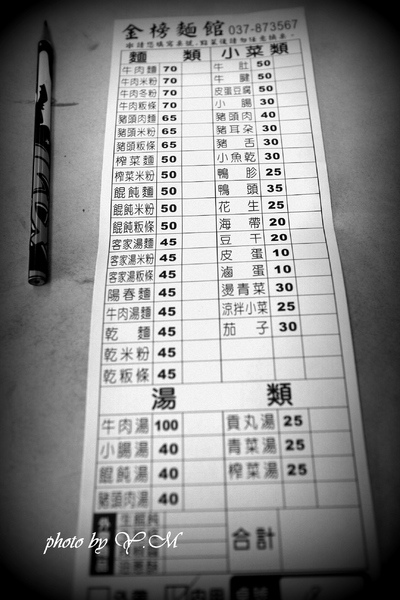 金榜麵館 037-873567
麵類 小菜類
牛肉麵 70 牛肚 50
牛肉米粉 70 牛腱 50
牛肉冬粉 70 皮蛋豆腐 50
牛肉粄條 70 小腸 30
豬頭肉麵 65 豬頭肉 40
豬頭米粉 65 豬耳朵 30
豬頭粄條 65 豬舌 30
榨菜麵 50 小魚乾 30
榨菜米粉 50 鴨胗 25
餛飩麵 50 鴨頭 35
餛飩米粉 50 花生 25
餛飩粄條 50 海帶 20
客家湯麵 45 豆干 20
客家湯米粉 45 皮蛋 10
客家湯粄條 45 滷蛋 10
陽春麵 45 燙青菜 30
牛肉湯麵 45 涼拌小菜 25
乾麵 45 茄子 30
乾米粉 45
乾粄條 45
湯類
牛肉湯 100 貢丸湯 25
小腸湯 40 青菜湯 25
餛飩湯 40 榨菜湯 25
豬頭肉湯 40
合計
photo by Y.M